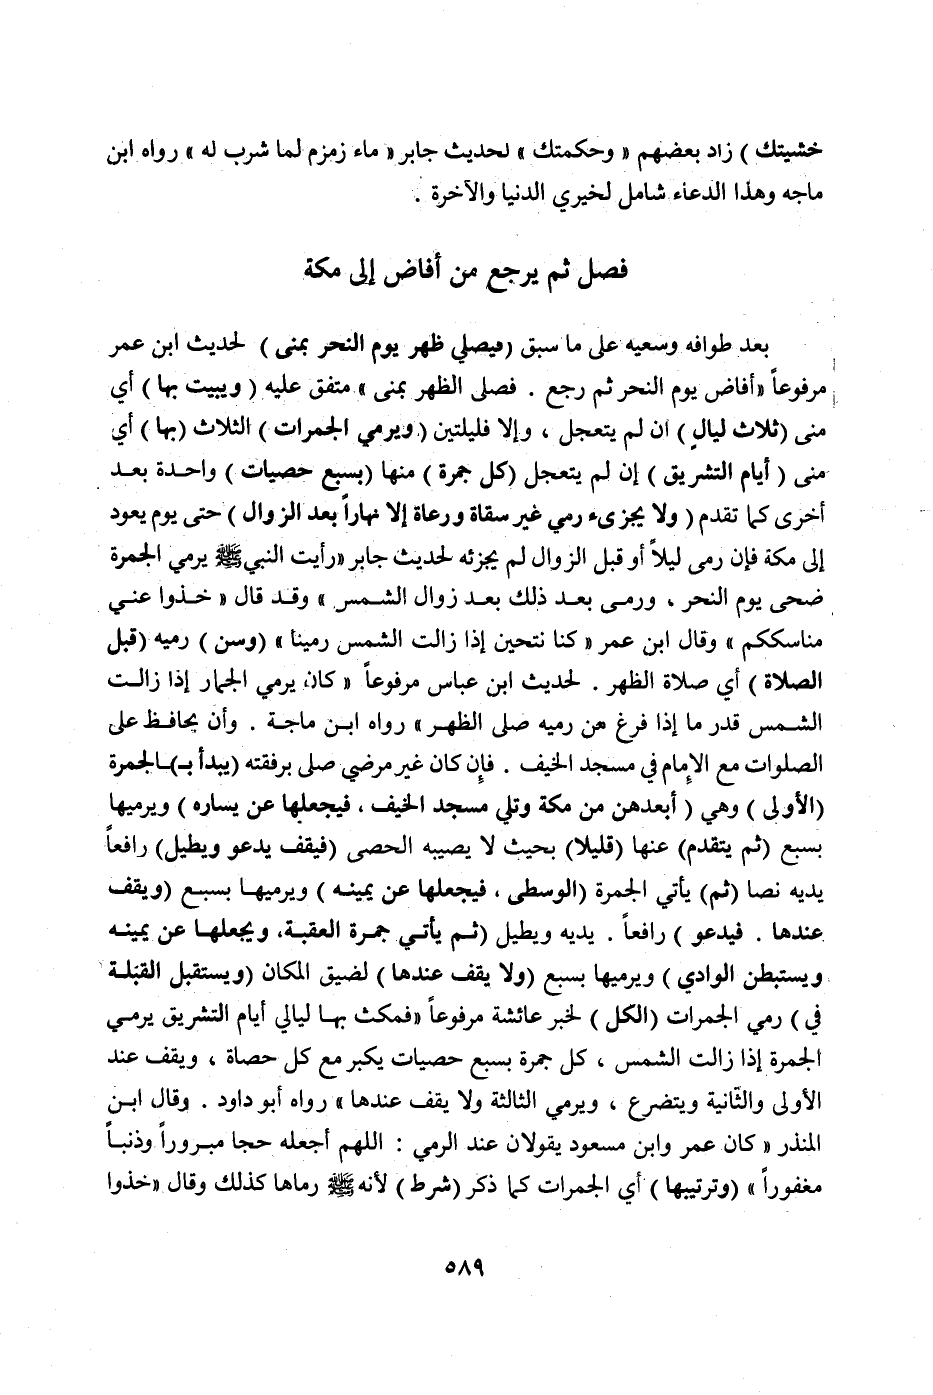 خشيتك ) زاد بعضهم « وحكمتك » لحديث جابر « ماء زمزم لما شرب له » رواه ابن
ماجه وهذا الدعاء شامل لخيري الدنيا والآخرة .
فصل ثم يرجع من أفاض إلى مكة
بعد طوافه وسعيه على ما سبق (فيصلي ظهر يوم النحر بمنى ) لحديث ابن عمر
مرفوعاً «أفاض يوم النحر ثم رجع . فصلى الظهر بمنى » متفق عليه ( ويبيت بها ) أي
منى (ثلاث ليالٍ ) ان لم يتعجل ، وإلا فليلتين (ويرمي الجمرات ) الثلاث (بها ) أي
منى ( أيام التشريق ) إن لم يتعجل (كل جمرة ) منها (بسبع حصيات ) واحدة بعد
أخرى كما تقدم ( ولا يجزىء رمي غير سقاة ورعاة إلا نهاراً بعد الزوال ) حتى يوم يعود
إلى مكة فإن رمى ليلاً أو قبل الزوال لم يجزئه لحديث جابر «رأيت النبي ﷺ يرمي الجمرة
ضحى يوم النحر ، ورمى بعد ذلك بعد زوال الشمس » وقد قال « خذوا عني
مناسككم » وقال ابن عمر « كنا نتحين إذا زالت الشمس رمينا » (وسن ) رميه (قبل
الصلاة ) أي صلاة الظهر . لحديث ابن عباس مرفوعاً « كان يرمي الجمار إذا زالت
الشمس قدر ما إذا فرغ من رميه صلى الظهر » رواه ابن ماجة . وأن يحافظ على
الصلوات مع الإمام في مسجد الخيف . فإن كان غير مرضي صلى برفقته (يبدأ بـ)ـالجمرة
(الأولى ) وهي ( أبعدهن من مكة وتلي مسجد الخيف ، فيجعلها عن يساره ) ويرميها
بسبع (ثم يتقدم) عنها (قليلا) بحيث لا يصيبه الحصى (فيقف يدعو ويطيل) رافعاً
يديه نصا (ثم) يأتي الجمرة (الوسطى ، فيجعلها عن يمينه ) ويرميها بسبع (ويقف
عندها . فيدعو ) رافعاً . يديه ويطيل (ثم يأتي جمرة العقبة، ويجعلها عن يمينه
ويستبطن الوادي ) ويرميها بسبع (ولا يقف عندها ) لضيق المكان (ويستقبل القبلة
في ) رمي الجمرات (الكل ) لخبر عائشة مرفوعاً «فمكث بها ليالي أيام التشريق يرمي
الجمرة إذا زالت الشمس ، كل جمرة بسبع حصيات يكبر مع كل حصاة ، ويقف عند
الأولى والثانية ويتضرع ، ويرمي الثالثة ولا يقف عندها » رواه أبو داود . وقال ابن
المنذر « كان عمر وابن مسعود يقولان عند الرمي : اللهم أجعله حجا مبروراً وذنباً
مغفوراً » (وترتيبها ) أي الجمرات كما ذكر (شرط ) لأنه ﷺ رماها كذلك وقال «خذوا
٥٨٩